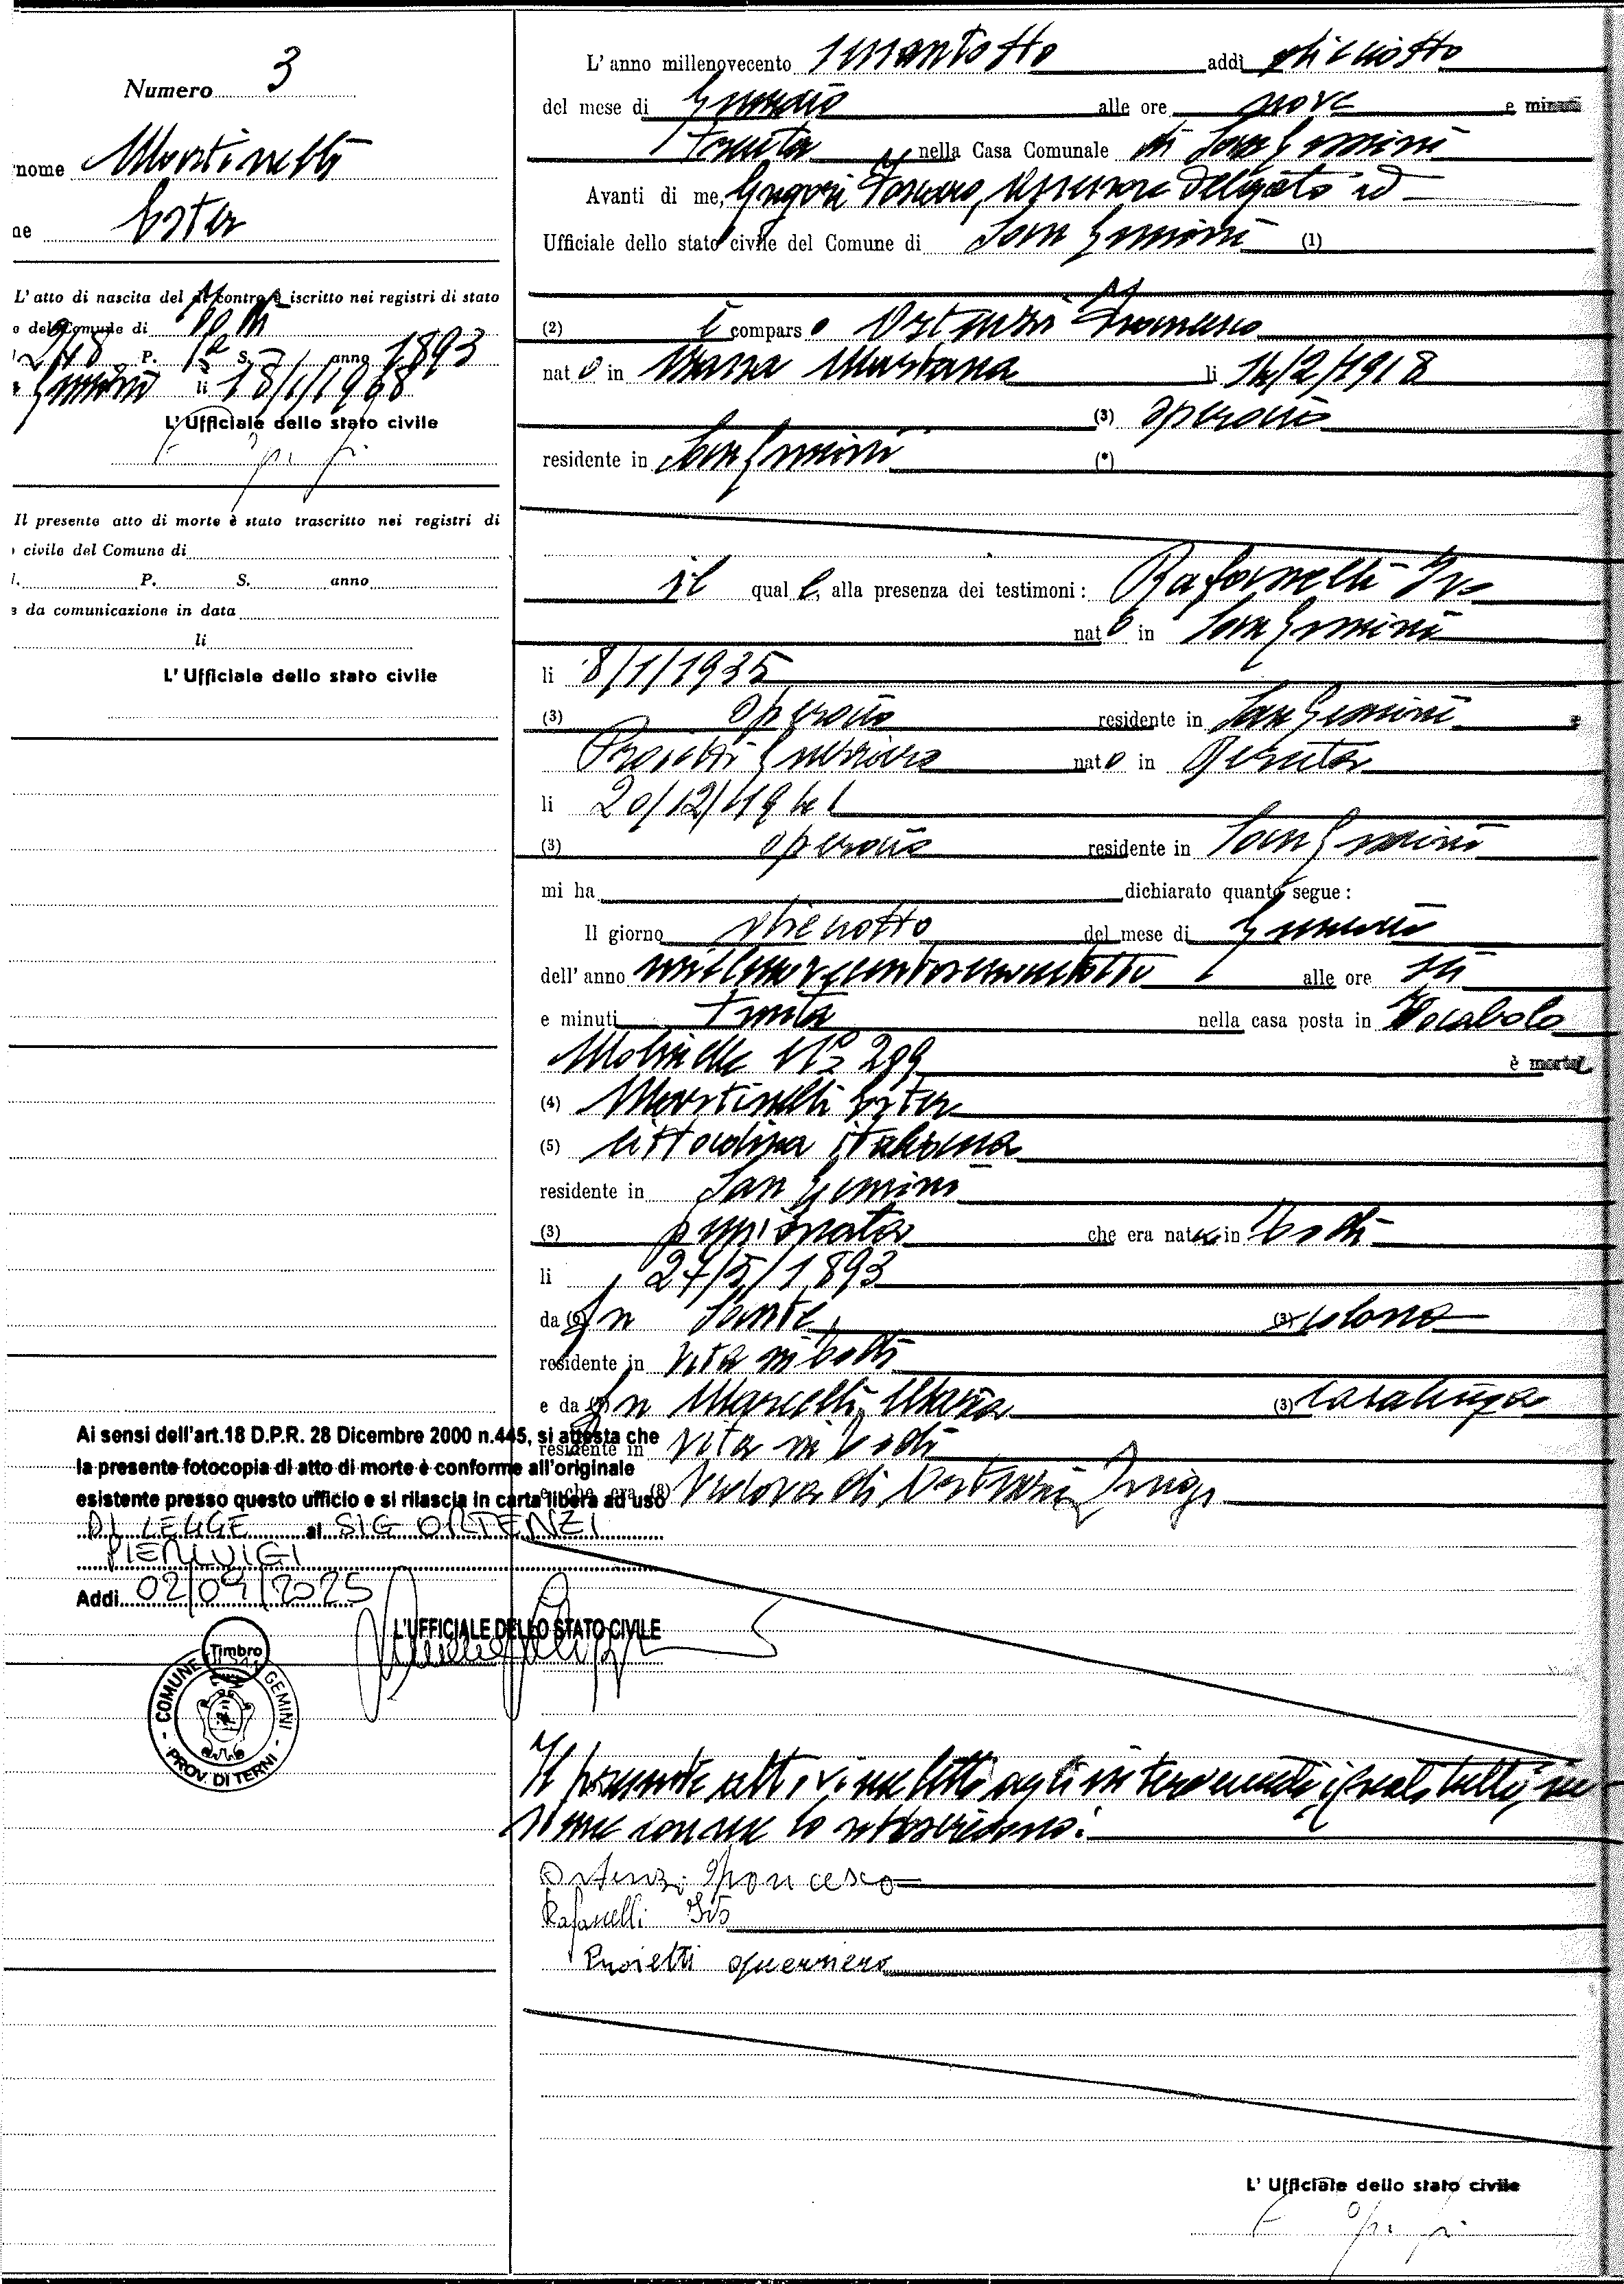 Numero 3
nome Martinelli
ne Ester
L'atto di nascita del di contro è iscritto nei registri di stato
e del Comune di Todi
248 P. 1ª S. anno 1893
Gemini li 18/1/1968
L'Ufficiale dello stato civile
Il presente atto di morte è stato trascritto nei registri di
civile del Comune di
P. S. anno
e da comunicazione in data
li
L'Ufficiale dello stato civile
Ai sensi dell'art.18 D.P.R. 28 Dicembre 2000 n.445, si attesta che
la presente fotocopia di atto di morte è conforme all'originale
esistente presso questo ufficio e si rilascia in carta libera ad uso
DI LEGGE al SIG ORTENZI
PIERLUIGI
Addì 02/09/2025
L'UFFICIALE DELLO STATO CIVILE
Timbro
COMUNE GEMINI
- PROV. DI TERNI -
L'anno millenovecento sessantotto addì diciotto
del mese di Gennaio alle ore nove e minuti
trenta nella Casa Comunale di San Gemini
Avanti di me, Grigori assessore delegato ad
Ufficiale dello stato civile del Comune di San Gemini (1)
(2) è comparso Ortenzi Francesco
nato in Massa Martana li 14/2/1918
(3) operaio
residente in San Gemini (*)
il quale, alla presenza dei testimoni: Rafanelli Ivo
nato in San Gemini
li 8/1/1935
(3) operaio residente in San Gemini e
Proietti Guerriero nato in Deruta
li 20/12/1941
(3) operaio residente in San Gemini
mi ha dichiarato quanto segue:
Il giorno diciotto del mese di Gennaio
dell'anno millenovecentosessantotto alle ore sei
e minuti trenta nella casa posta in Vocabolo
Molinella N° 299 è morta
(4) Martinelli Ester
(5) cittadina italiana
residente in San Gemini
(3) pensionata che era nata in Todi
li 27/5/1893
da (6) fu Sante (3) colono
residente in vita in Todi
e da (7) fu Marcelli Maria (3) casalinga
residente in vita in Todi
e che era (8) Vedova di Ortenzi Luigi
Il presente atto viene letto agli intervenuti i quali tutti, in-
sieme con me lo sottoscrivono:
Ortenzi Francesco
Rafanelli Ivo
Proietti Guerriero
L'Ufficiale dello stato civile